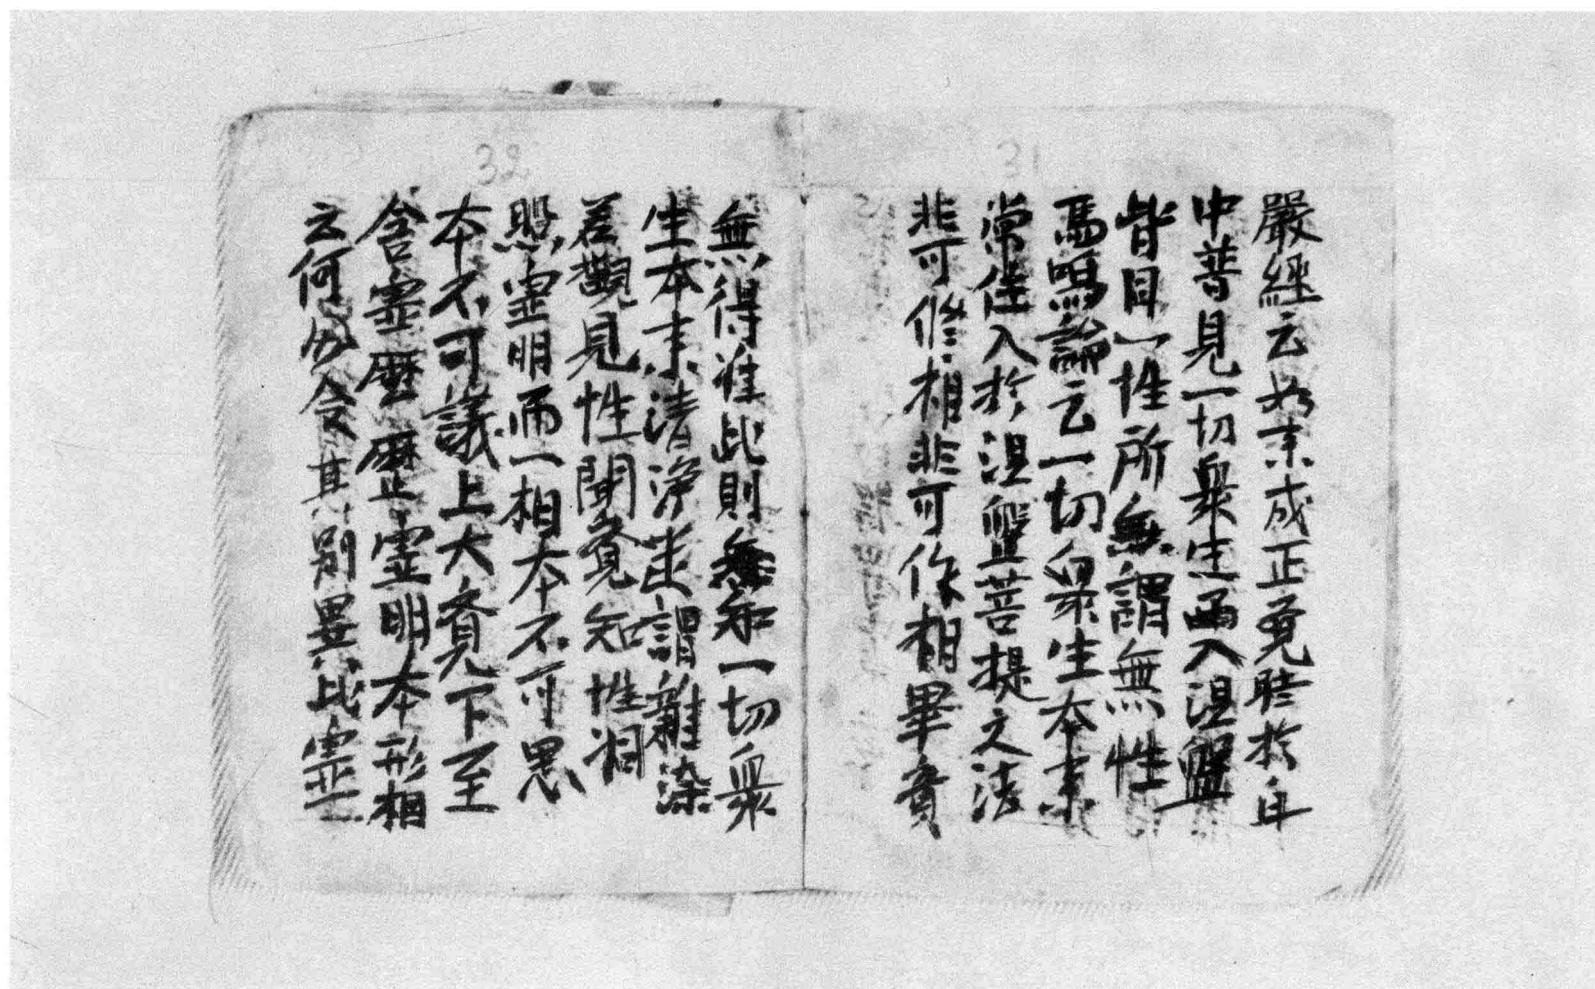 31
嚴經云如来成正覺時於身
中普見一切衆生西入涅盤
皆目一性所無謂無性
馬鳴論云一切衆生本来
常住入於涅盤菩提之法
非可修相非可作相畢竟
32
無得准此則無知一切衆
生本来清浄豈謂離染
若觀見性聞覺知性湘
照靈明而一相本不可思
本不可議上大覺下至
含靈曆曆靈明本形相
云何分令其别異此靈